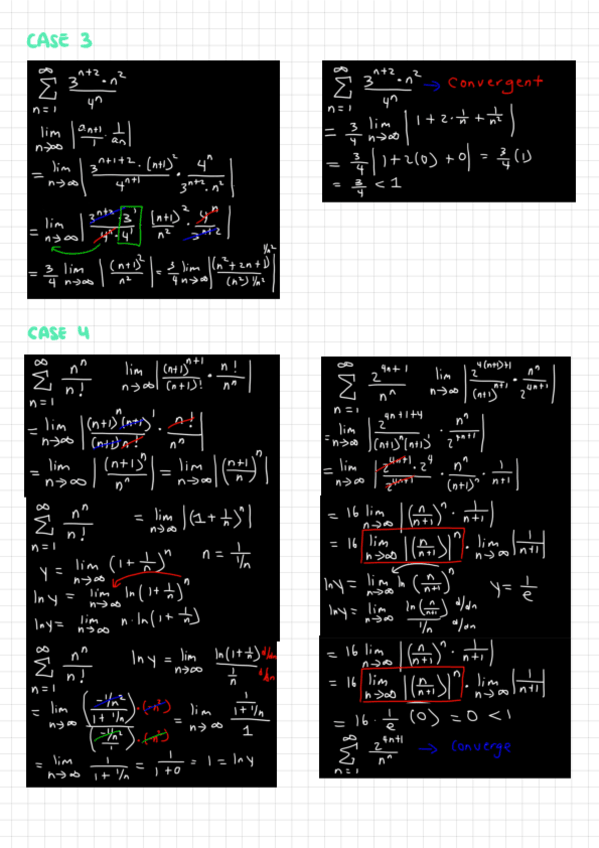 CASE 3
∞
∑ 3^(n+2) · n² / 4^n
n=1
lim n→∞ | a_(n+1)/1 · 1/a_n |
= lim n→∞ | 3^(n+1+2) · (n+1)² / 4^(n+1) · 4^n / 3^(n+2) · n² |
= lim n→∞ | 3^(n+2) · 3¹ / 4^n · 4¹ (n+1)² / n² · 4^n / 3^(n+2) |
= 3/4 lim n→∞ | (n+1)² / n² | = 3/4 lim n→∞ | (n²+2n+1) 1/n² / (n²) 1/n² |
∞
∑ 3^(n+2) · n² / 4^n → Convergent
n=1
= 3/4 lim n→∞ | 1 + 2 · 1/n + 1/n² |
= 3/4 | 1 + 2(0) + 0 | = 3/4 (1)
= 3/4 < 1
CASE 4
∞
∑ n^n / n! lim n→∞ | (n+1)^(n+1) / (n+1)! · n! / n^n |
n=1
= lim n→∞ | (n+1)^n (n+1)¹ / (n+1) n! · n! / n^n |
= lim n→∞ | (n+1)^n / n^n | = lim n→∞ | (n+1 / n)^n |
∞
∑ n^n / n! = lim n→∞ | (1 + 1/n)^n |
n=1
y = lim n→∞ (1 + 1/n)^n n = 1 / 1/n
ln y = lim n→∞ ln (1 + 1/n)^n
ln y = lim n→∞ n · ln (1 + 1/n)
∞
∑ n^n / n! ln y = lim n→∞ ln(1 + 1/n) d/dn / 1/n d/dn
n=1
= lim n→∞ (-1/n² / 1 + 1/n) · (-n²) / (-1/n² / 1) · (-n²) = lim n→∞ 1 / 1+1/n / 1
= lim n→∞ 1 / 1 + 1/n = 1 / 1+0 = 1 = ln y
∞
∑ 2^(4n+1) / n^n lim n→∞ | 2^(4(n+1)+1) / (n+1)^(n+1) · n^n / 2^(4n+1) |
n=1
= lim n→∞ | 2^(4n+1+4) / (n+1)^n (n+1)¹ · n^n / 2^(4n+1) |
= lim n→∞ | 2^(4n+1) · 2⁴ / 2^(4n+1) · n^n / (n+1)^n · 1 / n+1 |
= 16 lim n→∞ | (n / n+1)^n · 1 / n+1 |
= 16 lim n→∞ | (n / n+1) |^n · lim n→∞ | 1 / n+1 |
ln y = lim n→∞ ln (n / n+1)^n y = 1/e
ln y = lim n→∞ ln (n / n+1) d/dn / 1/n d/dn
= 16 lim n→∞ | (n / n+1)^n · 1 / n+1 |
= 16 lim n→∞ | (n / n+1) |^n · lim n→∞ | 1 / n+1 |
= 16 · 1/e (0) = 0 < 1
∞
∑ 2^(4n+1) / n^n → Converge
n=1